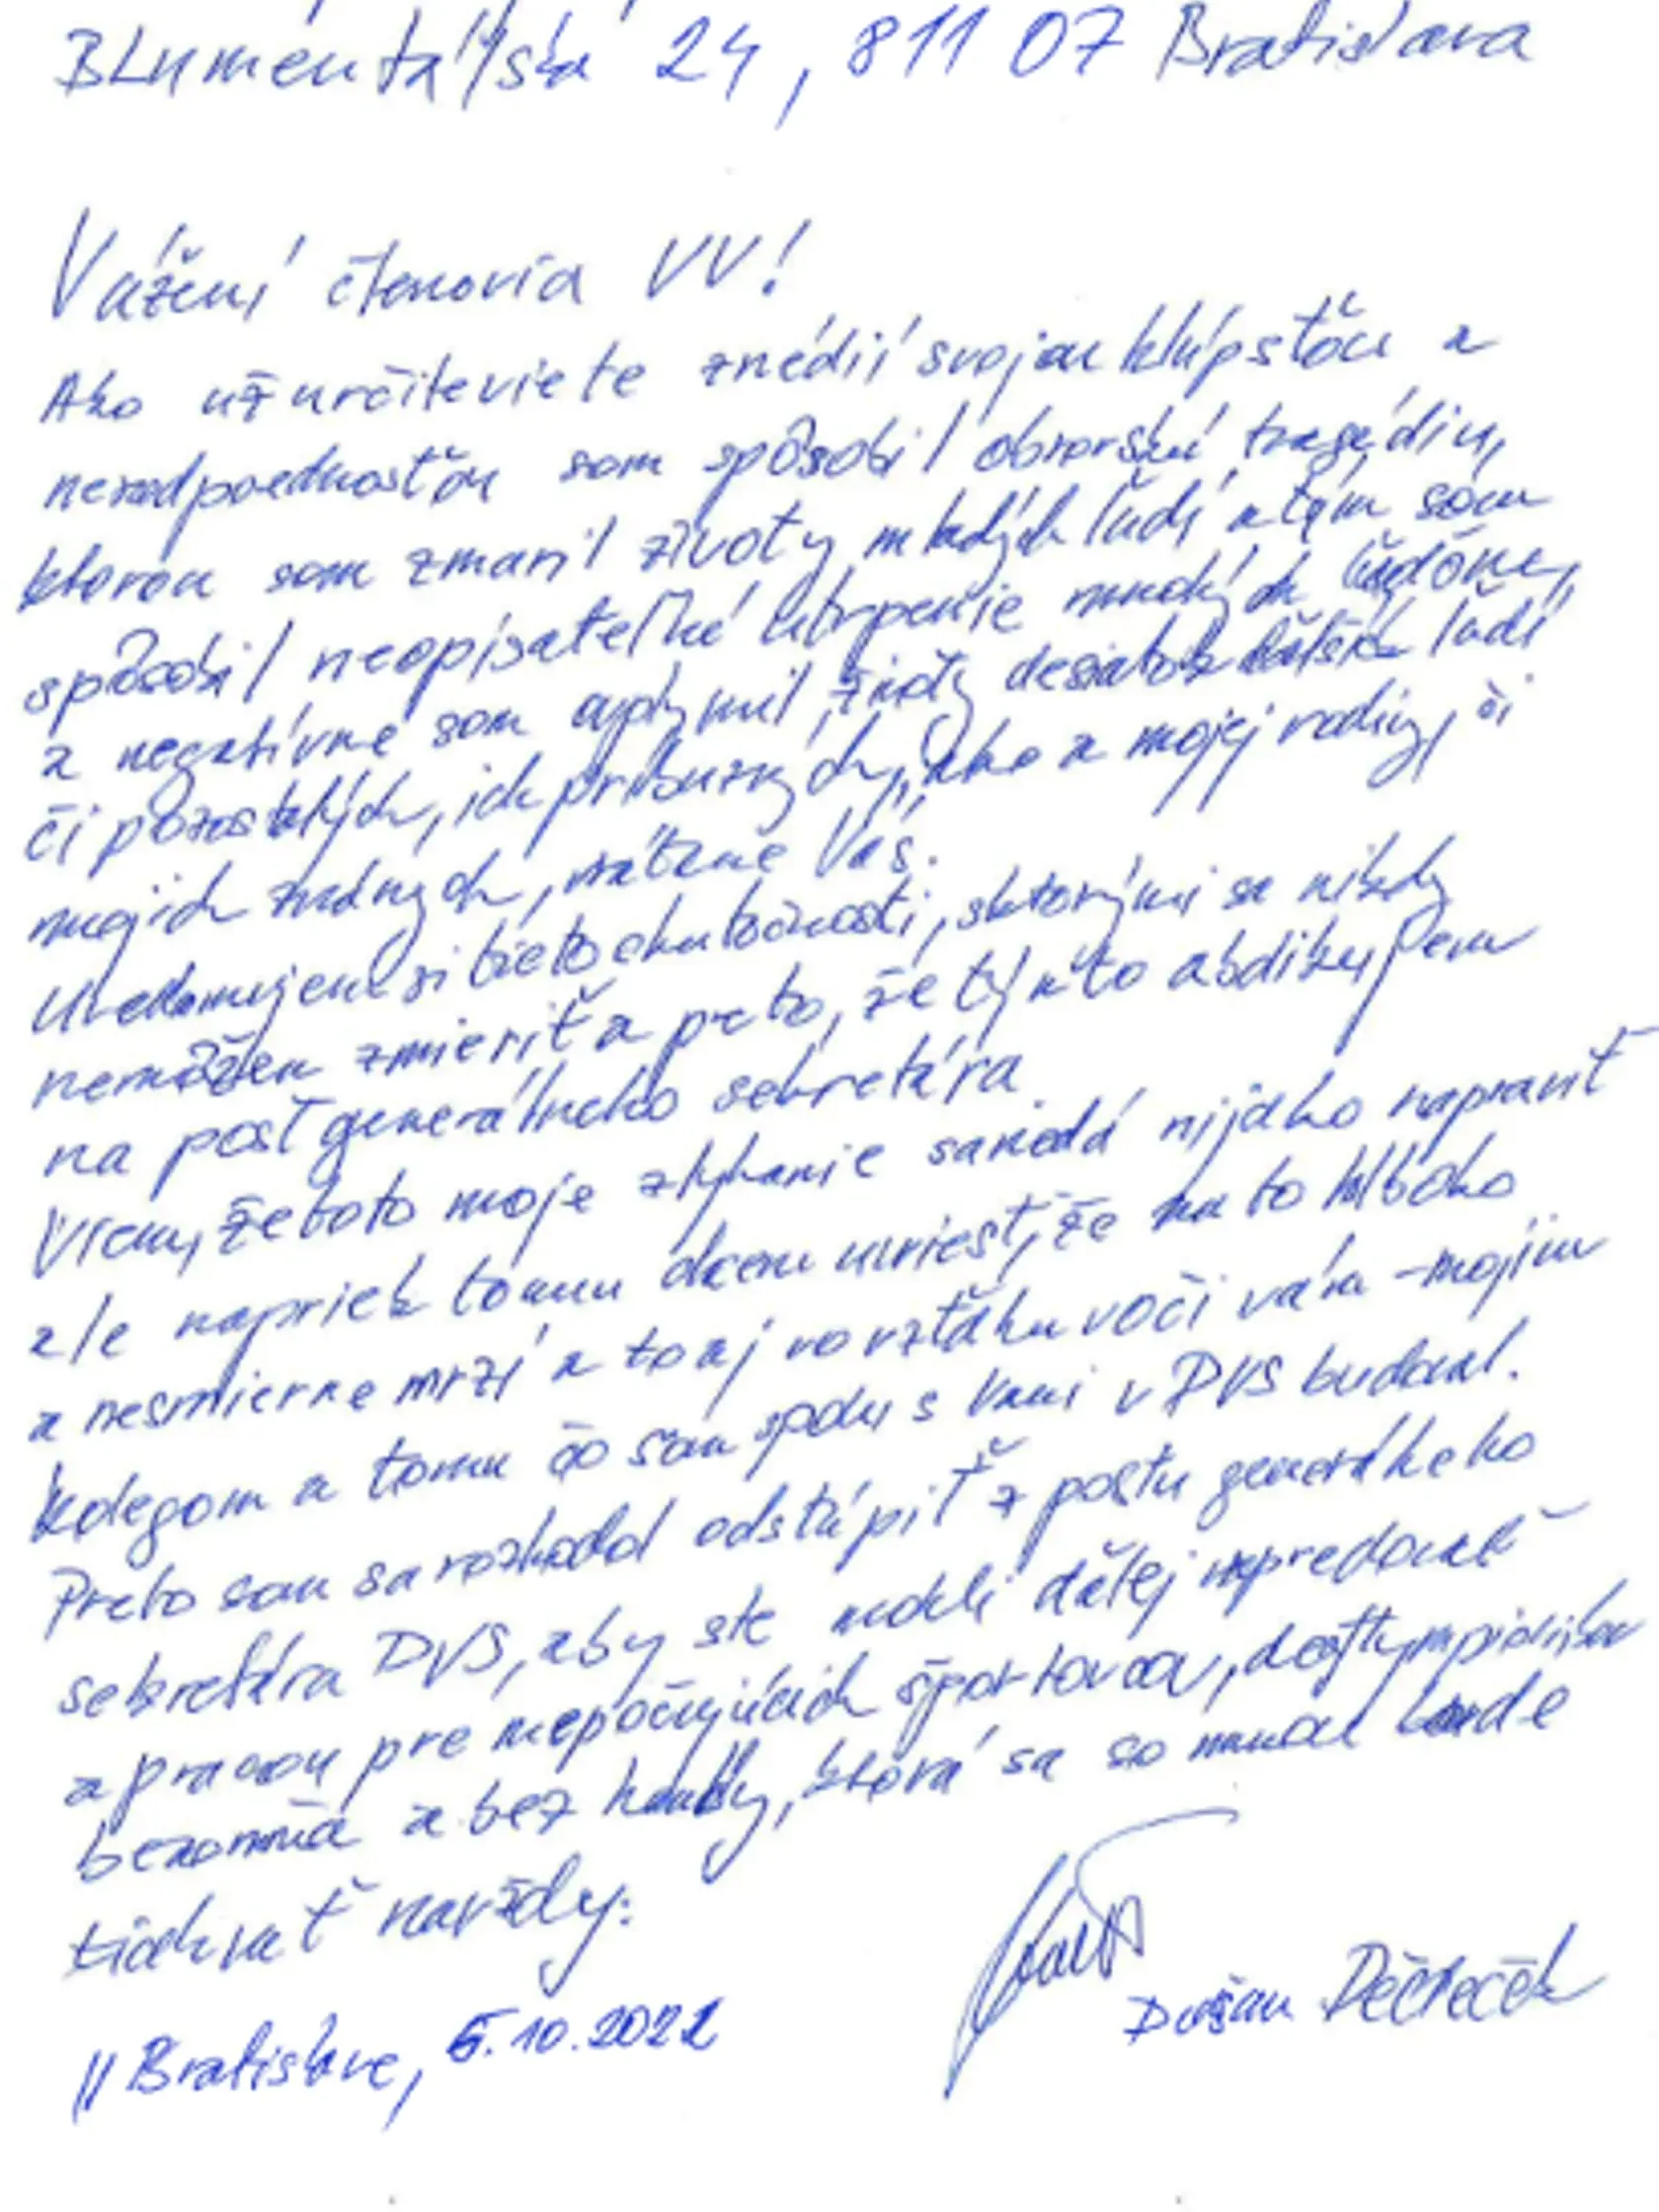 Blumentálska 24, 811 07 Bratislava
Vážení členovia VV!
Ako už určite viete z médií svojou hlúpsťou a
nezodpovednosťou som spôsobil obrovskú tragédiu,
ktorou som zmaril životy mladých ľudí a tým som
spôsobil neopísateľné utrpenie mnohých ľuďom,
a negatívne som ovplyvnil životy desiatok ďalších ľudí
či pozostalých, ich príbuzných, ako a mojej rodiny, či
mojich známych, vrátane Vás.
Uvedomujem si tieto skutočnosti, s ktorými sa nikdy
nemôžem zmieriť a preto, že týmto abdikujem
na post generálneho sekretára.
Viem, že toto moje zlyhanie sa nedá nijako napraviť
ale napriek tomu chcem uviesť, že ma to hlboko
a nesmierne mrzí a to aj vo vzťahu voči vám - mojim
kolegom a tomu čo som spolu s Vami v DVS budoval.
Preto som sa rozhodol odstúpiť z postu generálneho
sekretára DVS, aby ste mohli ďalej napredovať
a pracou pre nepočujúcich športovcov, deaflympionikov
bezomňa a bez hanby, ktorá sa so mnou bude
tiahnuť navždy.
V Bratislave, 5.10.2022
Dušan Dědeček